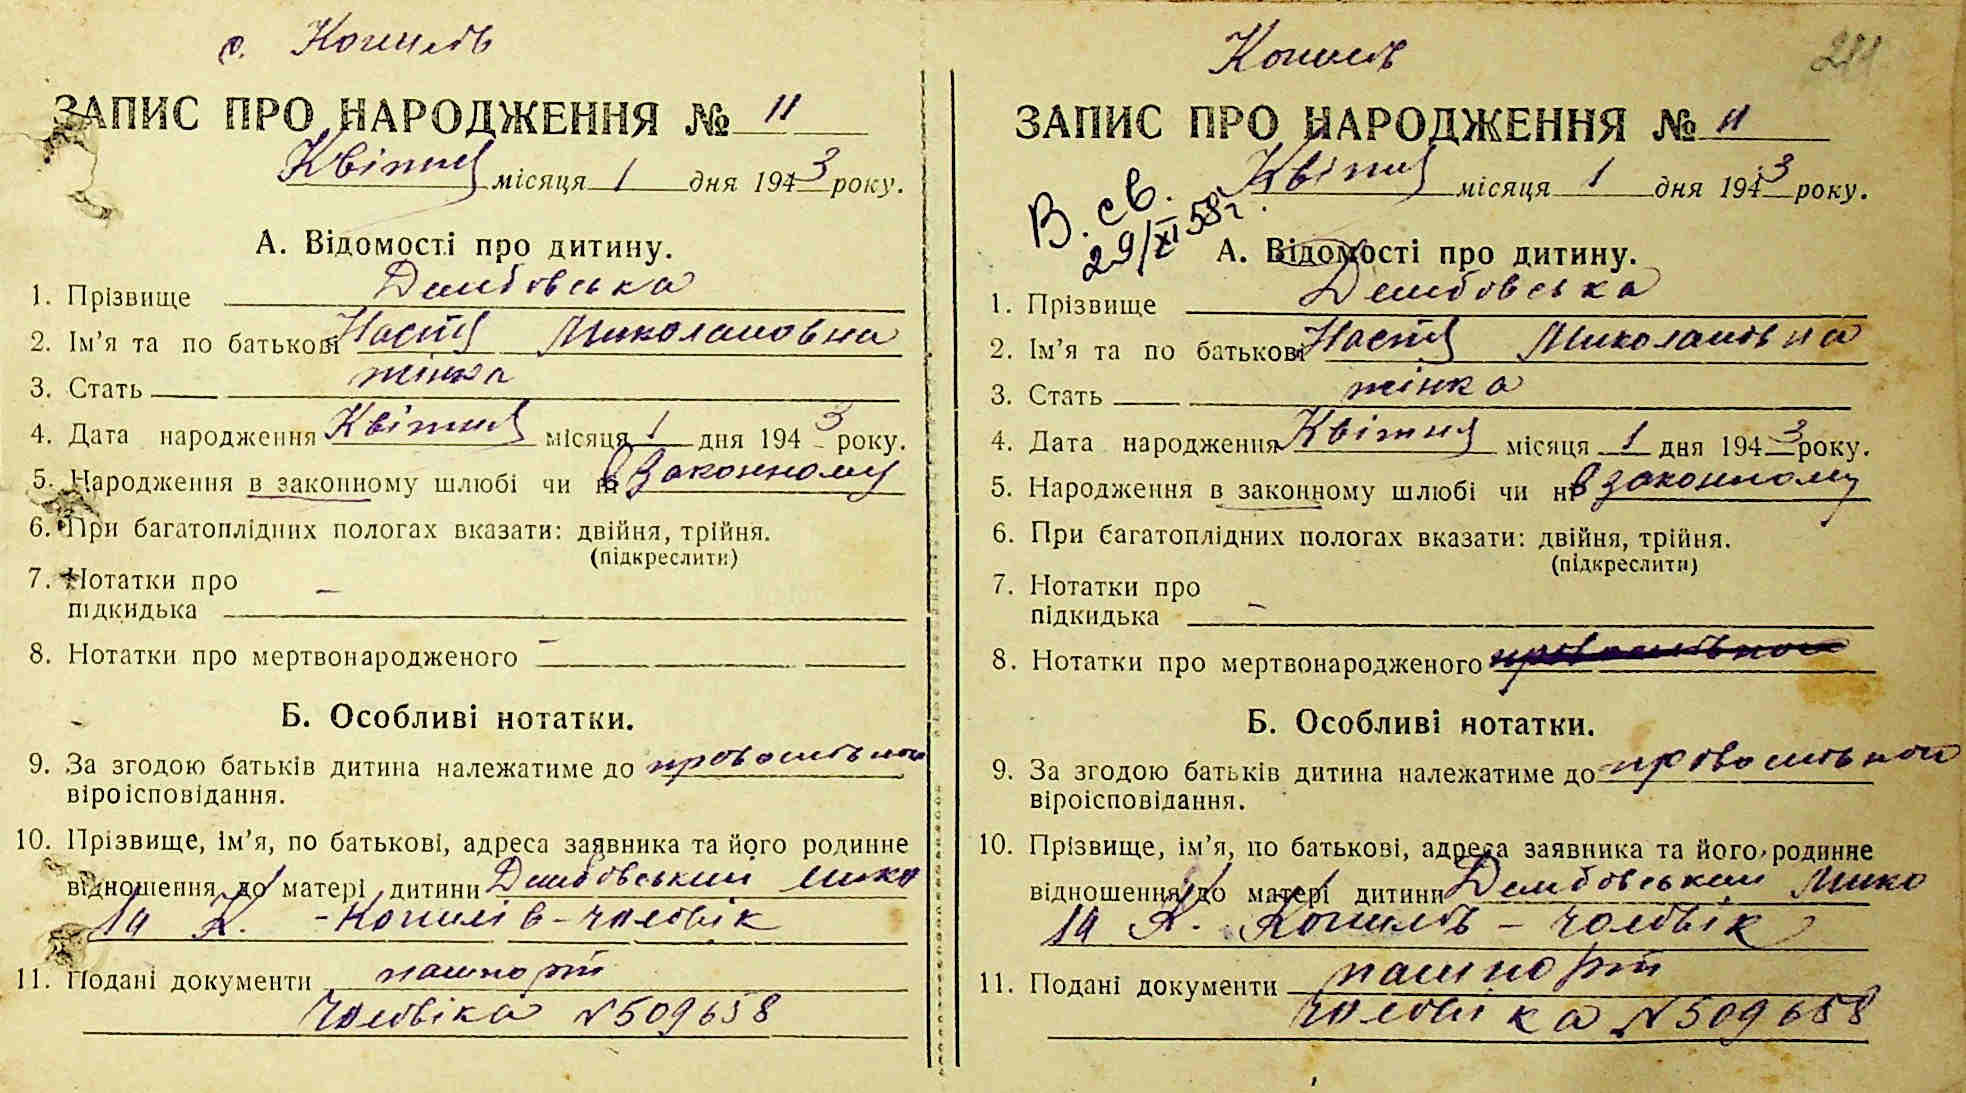 с. Копилів
ЗАПИС ПРО НАРОДЖЕННЯ № 11
Квітня місяця 1 дня 1943 року.
А. Відомості про дитину.
1. Прізвище Дембовська
2. Ім'я та по батькові Настя Миколаївна
3. Стать жінка
4. Дата народження Квітня місяця 1 дня 1943 року.
5. Народження в законному шлюбі чи ні в законному
6. При багатоплідних пологах вказати: двійня, трійня.
(підкреслити)
7. Нотатки про
підкидька –
8. Нотатки про мертвонародженого –
Б. Особливі нотатки.
9. За згодою батьків дитина належатиме до православної
віроісповідання.
10. Прізвище, ім'я, по батькові, адреса заявника та його родинне
відношення до матері дитини Дембовський Мико
ла К. - Копилів - чоловік
11. Подані документи пашпорт
чоловіка №509658
Копилів
211
ЗАПИС ПРО НАРОДЖЕННЯ № 11
Квітня місяця 1 дня 1943 року.
В. св.
29/XI 58г.
А. Відомості про дитину.
1. Прізвище Дембовська
2. Ім'я та по батькові Настя Миколаївна
3. Стать жінка
4. Дата народження Квітня місяця 1 дня 1943 року.
5. Народження в законному шлюбі чи ні в законному
6. При багатоплідних пологах вказати: двійня, трійня.
(підкреслити)
7. Нотатки про
підкидька –
8. Нотатки про мертвонародженого
Б. Особливі нотатки.
9. За згодою батьків дитина належатиме до православної
віроісповідання.
10. Прізвище, ім'я, по батькові, адреса заявника та його родинне
відношення до матері дитини Дембовський Мико
ла К. Копилів - чоловік
11. Подані документи пашпорт
чоловіка №509658